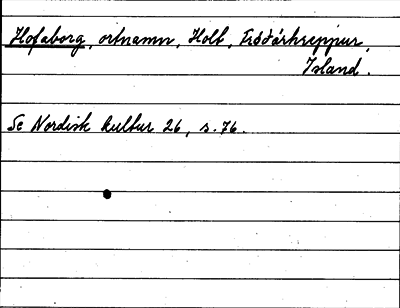 Hofaborg, ortnamn, Holt, Fróðárhreppur,
Island.
Se Nordisk kultur 26, s. 76.